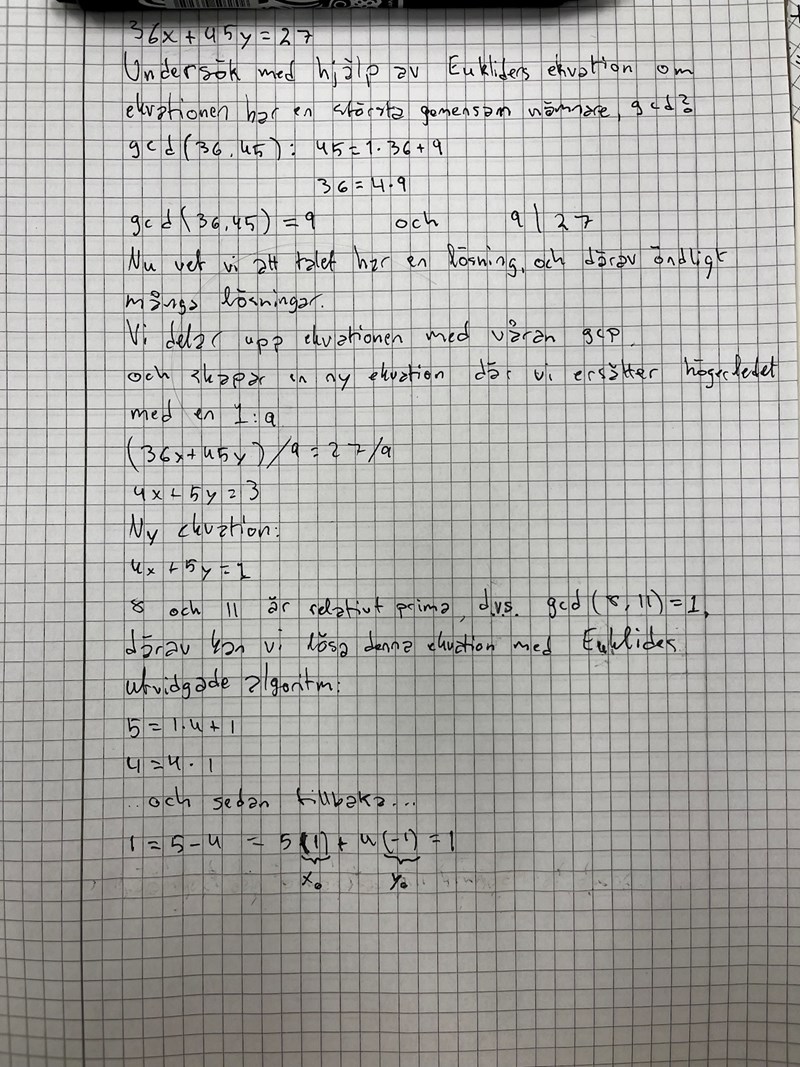 36x + 45y = 27
Undersök med hjälp av Eukliders ekvation om
ekvationen har en största gemensam nämnare, gcd?
gcd(36,45): 45 = 1·36 + 9
36 = 4·9
gcd(36,45) = 9 och 9 | 27
Nu vet vi att talet har en lösning, och därav öndligt
många lösningar.
Vi delar upp ekvationen med våran gcp.
och skapar en ny ekvation där vi ersätter högerledet
med en 1:a
(36x + 45y)/9 = 27/9
4x + 5y = 3
Ny ekvation:
4x + 5y = 1
8 och 11 är relativt prima, d.v.s. gcd(8,11) = 1,
därav kan vi lösa denna ekvation med Euklides
utvidgade algoritm:
5 = 1·4 + 1
4 = 4·1
...och sedan tillbaka...
1 = 5 - 4 = 5(1) + 4(-1) = 1
x₀ y₀